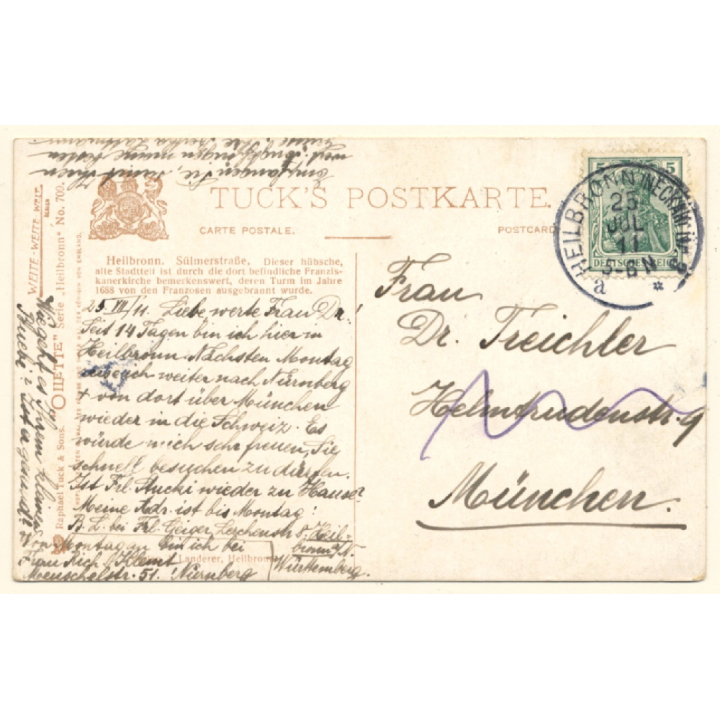 TUCK'S POSTKARTE.
CARTE POSTALE.
POSTCARD
Heilbronn. Sülmerstraße. Dieser hübsche,
alte Stadtteil ist durch die dort befindliche Franzis-
kanerkirche bemerkenswert, deren Turm im Jahre
1688 von den Franzosen ausgebrannt wurde.
25. VII/11. Liebe werte Frau Dr.!
Seit 14 Tagen bin ich hier in
Heilbronn. Nächsten Montag
weiter nach Nürnberg
+ von dort über München
wieder in die Schweiz. Es
würde mich sehr freuen, Sie
schnell besuchen zu dürfen.
Ist Frl. Stucki wieder zu Hause?
Meine Adr. ist bis Montag:
B. L. bei Frl. Geiger, Lerchenstr.
Heil-
bronn a/N.
Württemberg.
Montag an bin ich bei
Frau Rich. Klemt
51. Nürnberg
Landerer, Heilbronn
Empfangen Sie, samt Ihren
HEILBRONN (NECKAR)
25
JUL
11
5-6 N
a
5
DEUTSCHES REICH
Frau
Dr. Treichler
Helmtrudenstr. 9
München.
WEITE-WEITE WELT
BERLIN
Raphael Tuck & Sons. "OILETTE" Serie "Heilbronn" No. 700.
Wie geht es Ihrem kleinen